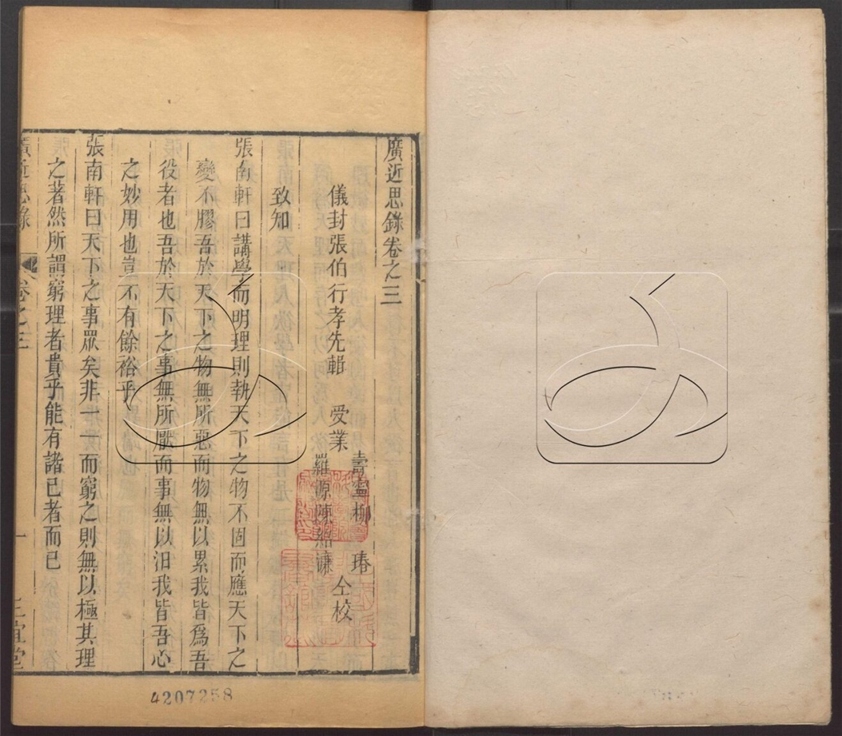 廣近思錄卷之三
儀封張伯行孝先輯 受業
壽寧柳 瑃
羅源陳紹濂
仝校
致知
張南軒曰講學而明理則執天下之物不固而應天下之
變不膠吾於天下之物無所惡而物無以累我皆爲吾
役者也吾於天下之事無所厭而事無以汨我皆吾心
之妙用也豈不有餘裕乎
張南軒曰天下之事眾矣非一一而窮之則無以極其理
之著然所謂窮理者貴乎能有諸已者而已
廣近思錄
卷之三
一
正誼堂
4207258